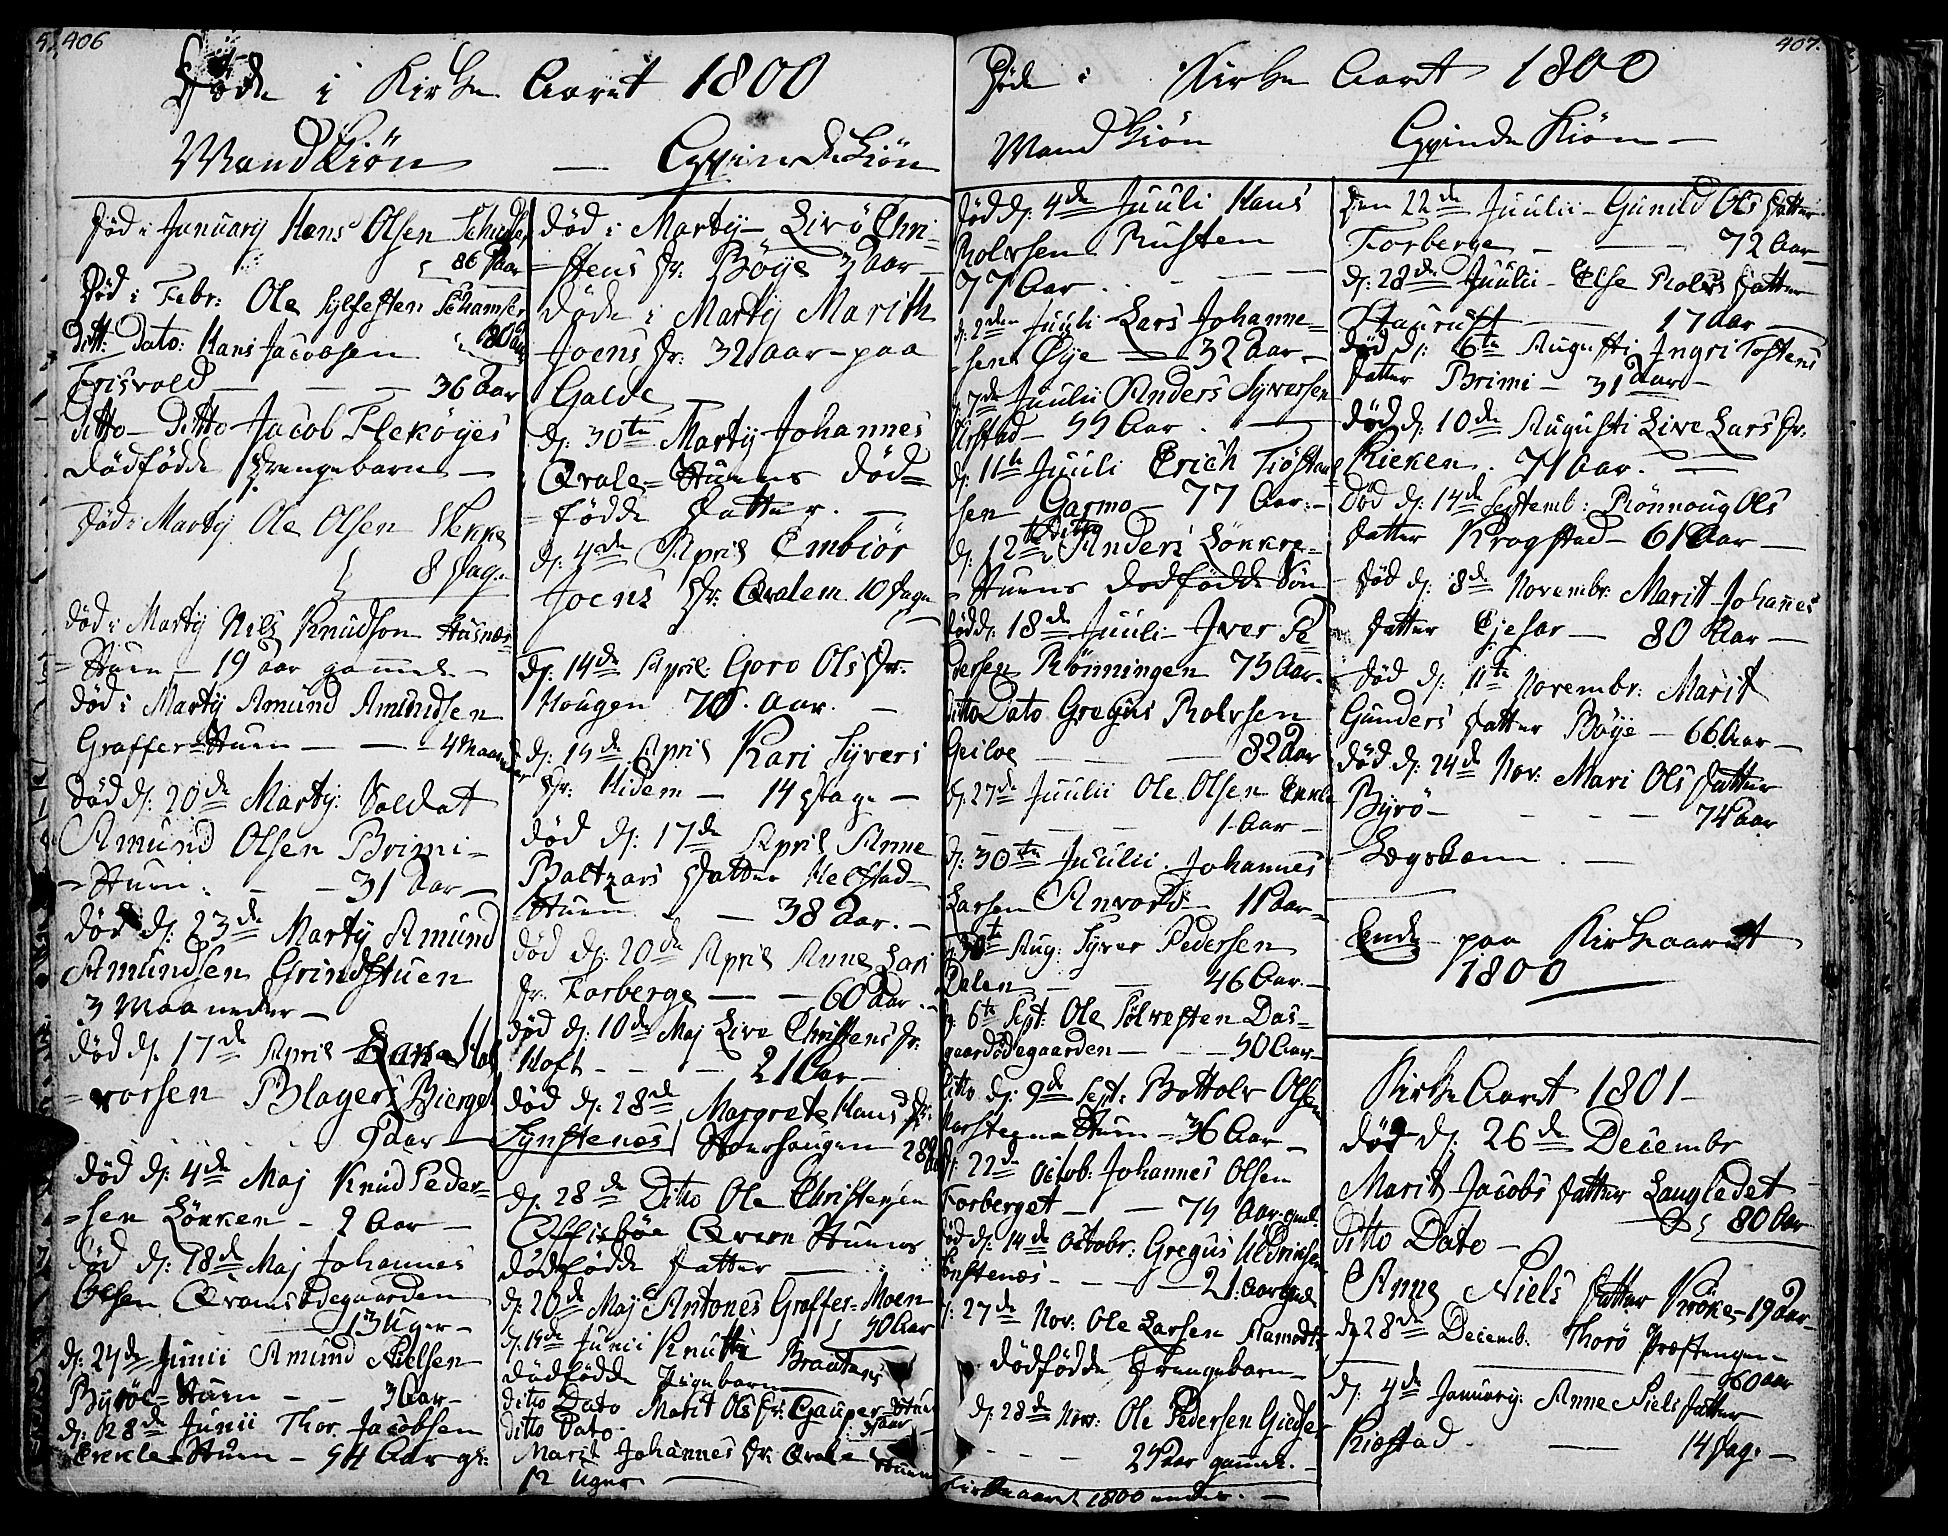 406
Døde i Kirke Aaret 1800
Mandkiøn — Qvindekiøn
død i January Hans Olsen
86 Aar
død i Febr: Ole Sylfesten
80 Aar
ditt: Dato: Hans Jacobsen
Frisvold — — 36 Aar
ditto — Ditto Jacob Flekøyes
dødfødde Drengebarn —
død i Marty Ole Olsen Wekke
8 Dage
død i Marty Nils Knudson
Stuen — 19 aar gammel —
død i Marty Amund Amundsen
Graffer-Stuen — — 4 Maaneder
død d: 20de Marty: Soldat
Amund Olsen Brimi-
-Stuen. — 31 Aar —
død d: 23de Marty Amund
Amundsen Grindstuen
3 Maaneder —
død d. 17de April
-vorsen Blager Bierget
9 aar —
død d: 4de Maj Knud Peder-
-sen Løkken — 2 Aar —
død d: 18de Maj Johannes
Olsen Qvamsødegaarden
13 Uger —
d: 24de Junii Amund Nielsen
Byrøe-Stuen — — 3 Aar —
d: 28de Junii Thor Jacobsen
Erekle-Stuen — 54 Aar gl:
død i Marty — Livø Chri-
-stens Dr: Bøye 3 Aar —
døde i Marty Marith
Joens Dr: 32 Aar — paa
Galde —
d: 30te Marty Johannes
Qvale-Stuens død-
-fødde Datter. —
d: 4de April Embiør
Joens Dr: Qvalem 10 Dage
d: 14de April: Goro Ols Dr:
Hougen 70. Aar. —
d: 15de April Kari Syvers
Dr: Hidem — 14 Dage —
død d: 17de April Anne
Baltzars Datter Helstad-
-Stuen — 38 Aar. —
død d: 20de April Anne Lars
Dr. Forberge — — 60 Aar. —
død d: 10de Maj Live Christens Dr:
Hoft — — — 21 Aar —
død d: 28de Margrete Hans Dr:
Synstenes Storhaugen 28 Aar
d: 28de Ditto Ole Christensen
Stuens
dødfødde Datter —
d: 20de Maj Antones Graffer-Moen
50 Aar
d: 15de Junii Knutti Brautens
dødfødde Pigebarn
ditto Dato Marit Ols Dr: Gauper-Stuen
ditto Dato.
Marit Johannes Dr: Qvale Stuen
12 Uger —
407.
Døde i Kirke Aaret 1800
Mandkiøn Qvinde Kiøn —
død d: 4de Juuli Hans
Rolvsen Rusten
77 Aar. — —
d: 2den Juuli Lars Johanne-
-sen Øye — 32 Aar —
d: 7de Juulii Anders Syversen
Aar. —
d: 11te Juuli Erich Tiøstael-
sen Garmo — 77 Aar. —
d: 12te Ditto Anders Løkkre-
-Stuens dødfødde Søn
død d: 18de Juuli — Iver Pe-
dersen Rønningen 75 Aar.
ditto Dato Gregus Rolvsen
Geiloe — — 82 Aar
d: 27de Juulii Ole Olsen
— — 1 Aar —
d: 30te Juulii. Johannes
Larsen Anvord — 11 Aar —
Aug: Syver Pedersen
Dalen — — 46 Aar. —
d: 6te Sept: Ole Sølvesten Das-
gaardødegaarden — — 50 Aar —
ditto d: 9de Sept: Bottolv Olsen
Stuen — 36 Aar —
d: 22de Octob: Johannes Olsen
Forberget — — 75 Aar gml.
død d: 14de Octobr: Gregus Uldrichsen
Synstenæs — — 21. Aar gml
d: 27de Nov: Ole Larsen
dødfødde Drengebarn —
d: 28de Nov: Ole Pedersen
— — 25 Aar gammel. —
Kirkeaaret 1800 ender. —
Den 22de Juulii — Gunild Ols Datter
Forberge — — 72 Aar —
d: 28de Juulii — Else Rolvs Datter
Staurust — 17 Aar —
død d: 6te Augusti Ingri Tostens
datter Brimi — 31 Aar —
død d: 10de Augusti Live Lars Dr:
Kieken. 71 Aar. —
død d: 14de Septemb: Rønnoug Ols
Datter Krogstad — 61 Aar —
død d: 8de Novembr: Marit Johannes
Datter Gjesar — 80 Aar —
død d: 11te Novembr: Marit
Gunders Datter Bøye — 66 Aar —
død d: 24de Nov: Mari Ols Datter
Byrø — — — 74 Aar
Legskem. —
Ende paa Kirkeaaret
1800
Kirke Aaret 1801 —
død d: 26de Decembr
Marit Jacobs Datter Langledet
80 Aar
ditto Dato —
Anne Niels Datter Krøke — 19 Aar —
d: 28de Decemb: Thorø Præstengen
— — 60 Aar
d: 4de January: Anne Niels Datter
Kiestad. — 14 Dage —